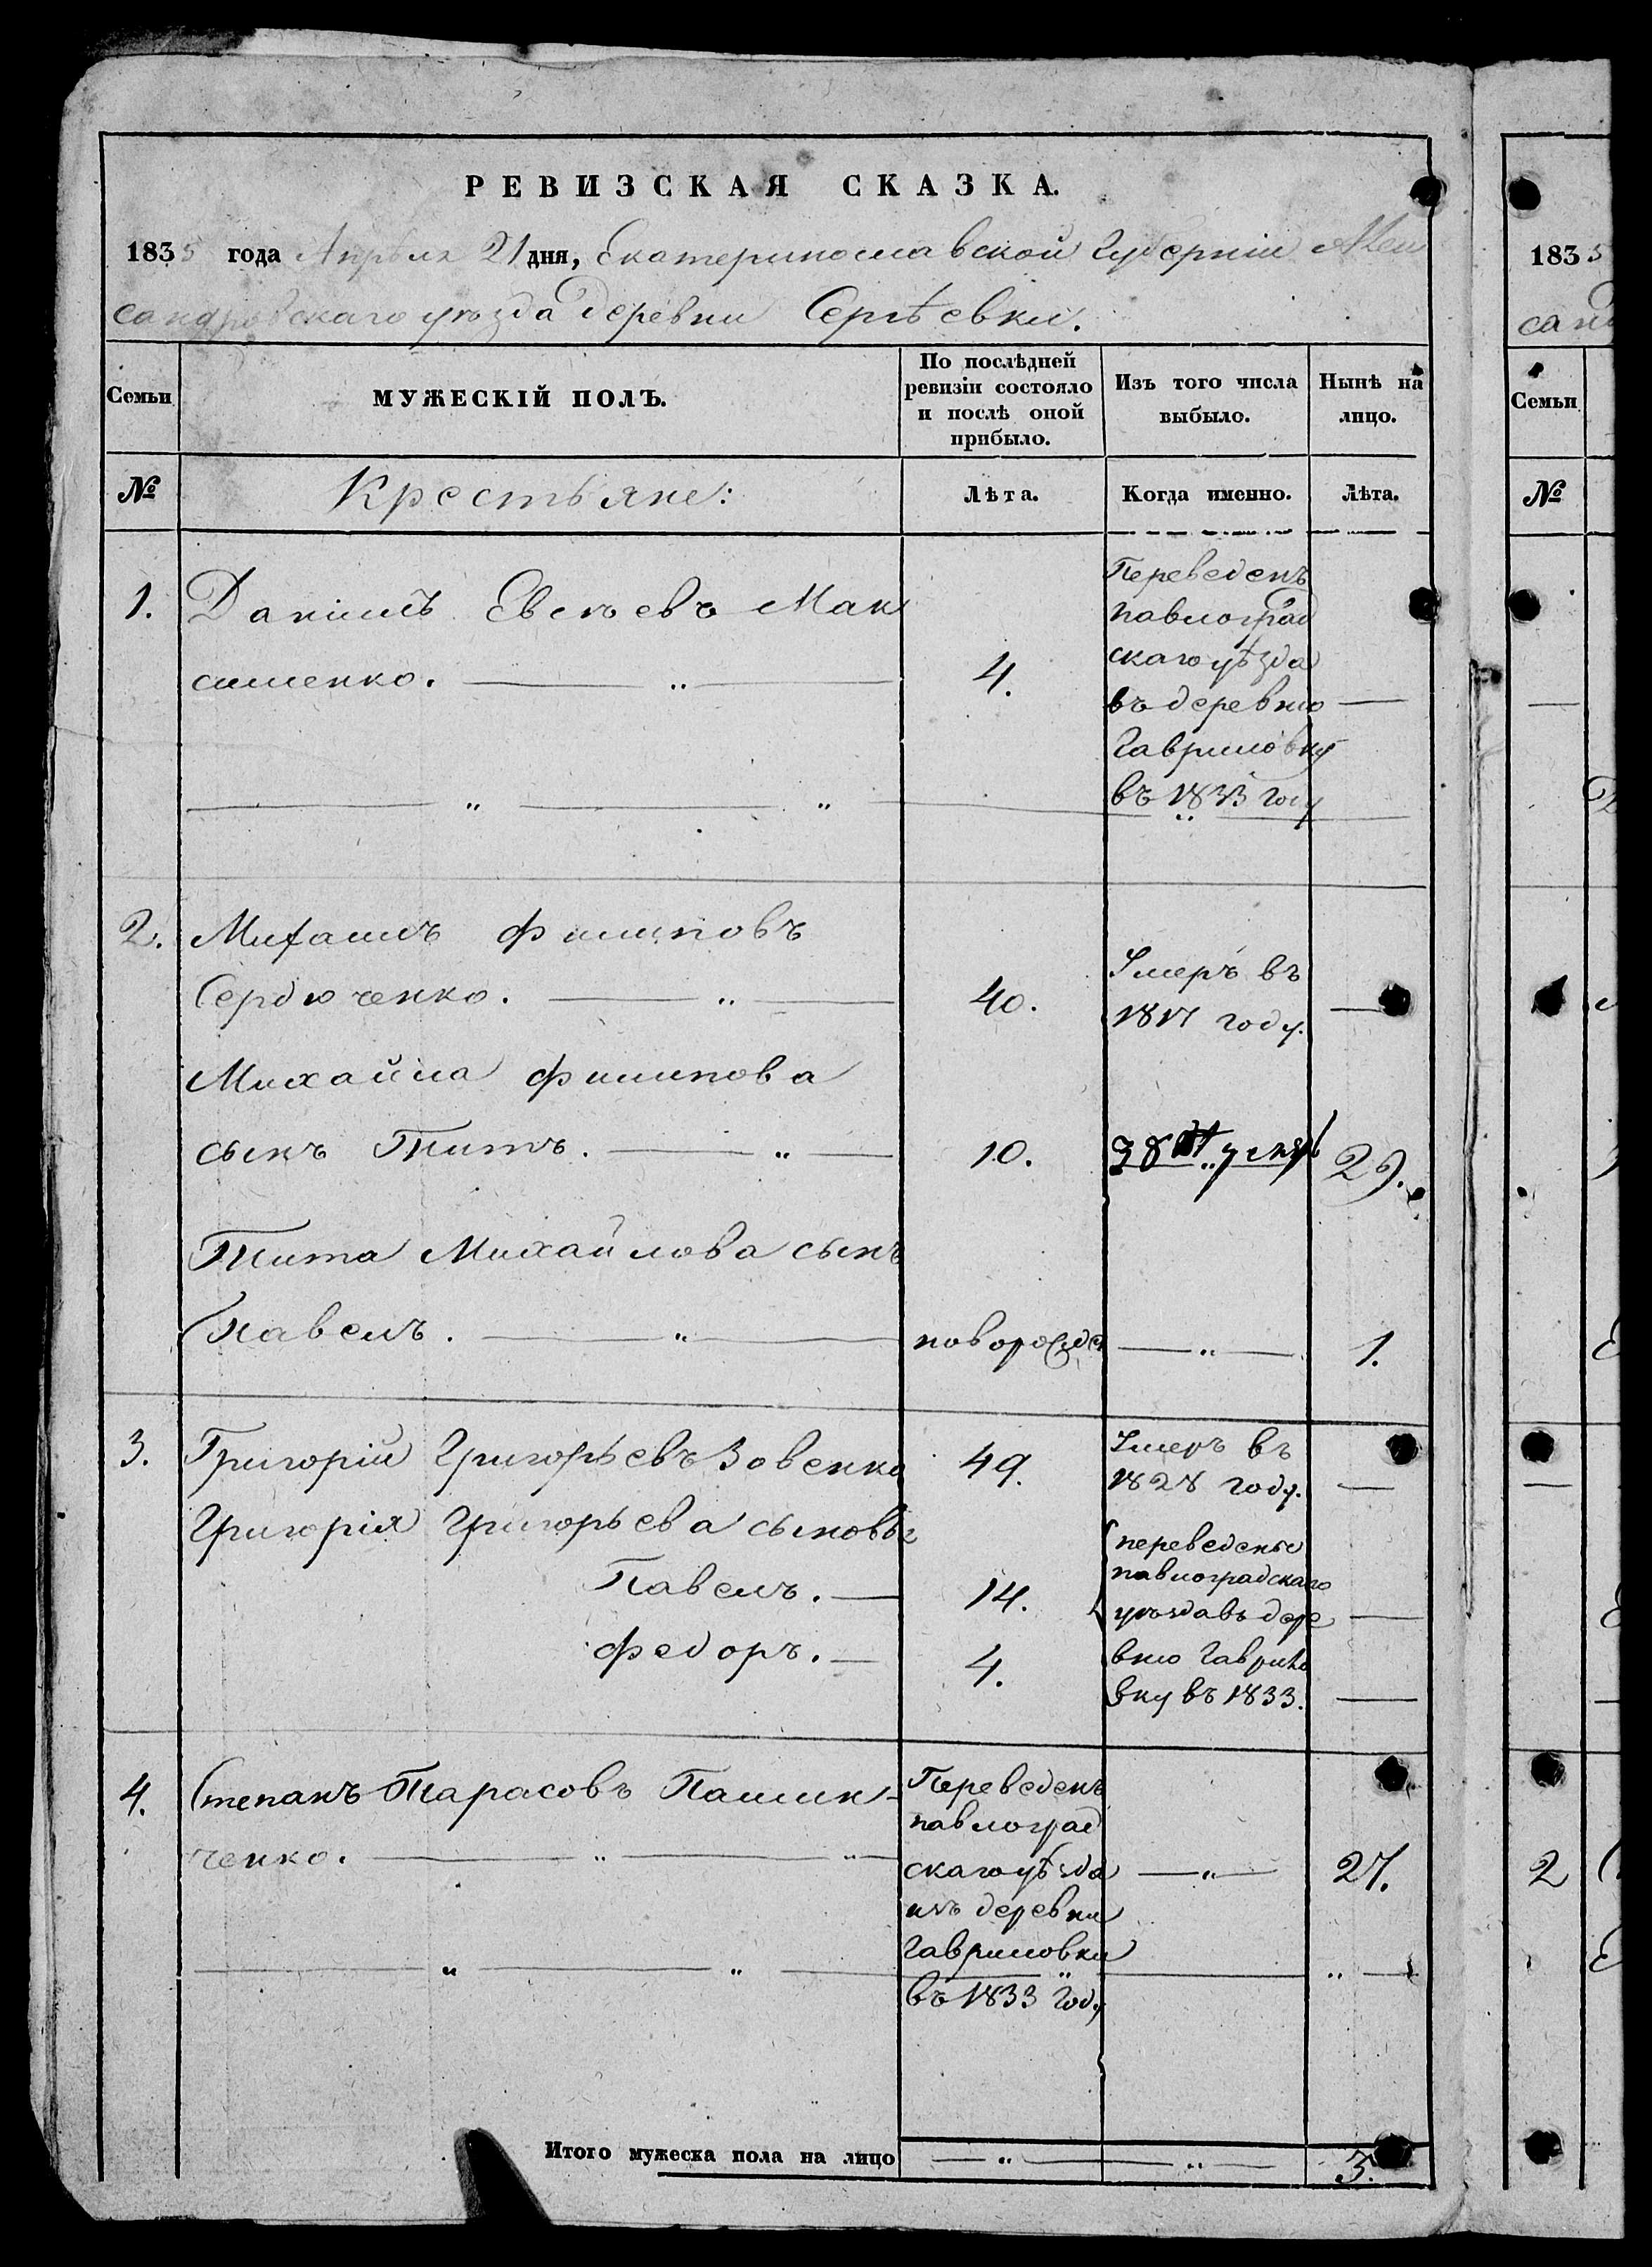 РЕВИЗСКАЯ СКАЗКА.
1835 года Апрѣля 21 дня, Екатеринославской Губерніи Алек
сандровскаго уѣзда деревни Сергѣевки.
Семьи
МУЖЕСКІЙ ПОЛЪ.
По послѣдней ревизіи состояло и послѣ оной прибыло.
Изъ того числа выбыло.
Нынѣ на лицо.
№
Крестьяне:
Лѣта.
Когда именно.
Лѣта.
1. Данiилъ Евсѣевъ Мак
сименко.
4.
Переведенъ
павлоград
скаго уѣзда
въ деревню
Гавриловку
въ 1833 году
2. Михаилъ Филиповъ
Сердюченко.
40.
Умеръ въ
1817 году.
Михайла Филипова
сынъ Титъ.
10.
29.
Тита Михайлова сынъ
Павелъ.
новорожде
1.
3. Григорій Григорьевъ Зовенко
49.
Умеръ въ
1828 году.
Григорія Григорьева сыновья
Павелъ.
14.
Федоръ.
4.
переведены
павлоградскаго
уѣзда въ дере
вню Гаврило
вку въ 1833.
4. Степанъ Тарасовъ Пашин-
ченко.
Переведенъ
павлоград
скаго уѣзда
изъ деревни
Гавриловки
въ 1833 году
27.
Итого мужеска пола на лицо
3.
1835
сан
Семьи
№
2